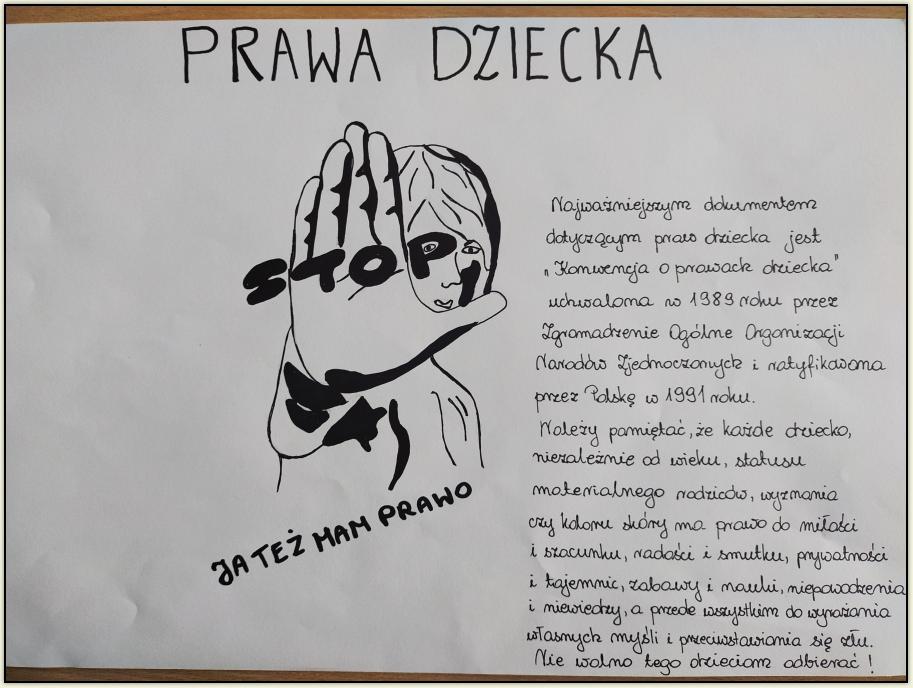 PRAWA DZIECKA
STOP!
JA TEŻ MAM PRAWO
Najważniejszym dokumentem
dotyczącym praw dziecka jest
„Konwencja o prawach dziecka"
uchwalona w 1989 roku przez
Zgromadzenie Ogólne Organizacji
Narodów Zjednoczonych i ratyfikowana
przez Polskę w 1991 roku.
Należy pamiętać, że każde dziecko,
niezależnie od wieku, statusu
materialnego rodziców, wyznania
czy koloru skóry ma prawo do miłości
i szacunku, radości i smutku, prywatności
i tajemnic, zabawy i nauki, niepowodzenia
i niewiedzy, a przede wszystkim do wyrażania
własnych myśli i przeciwstawiania się złu.
Nie wolno tego dzieciom odbierać!